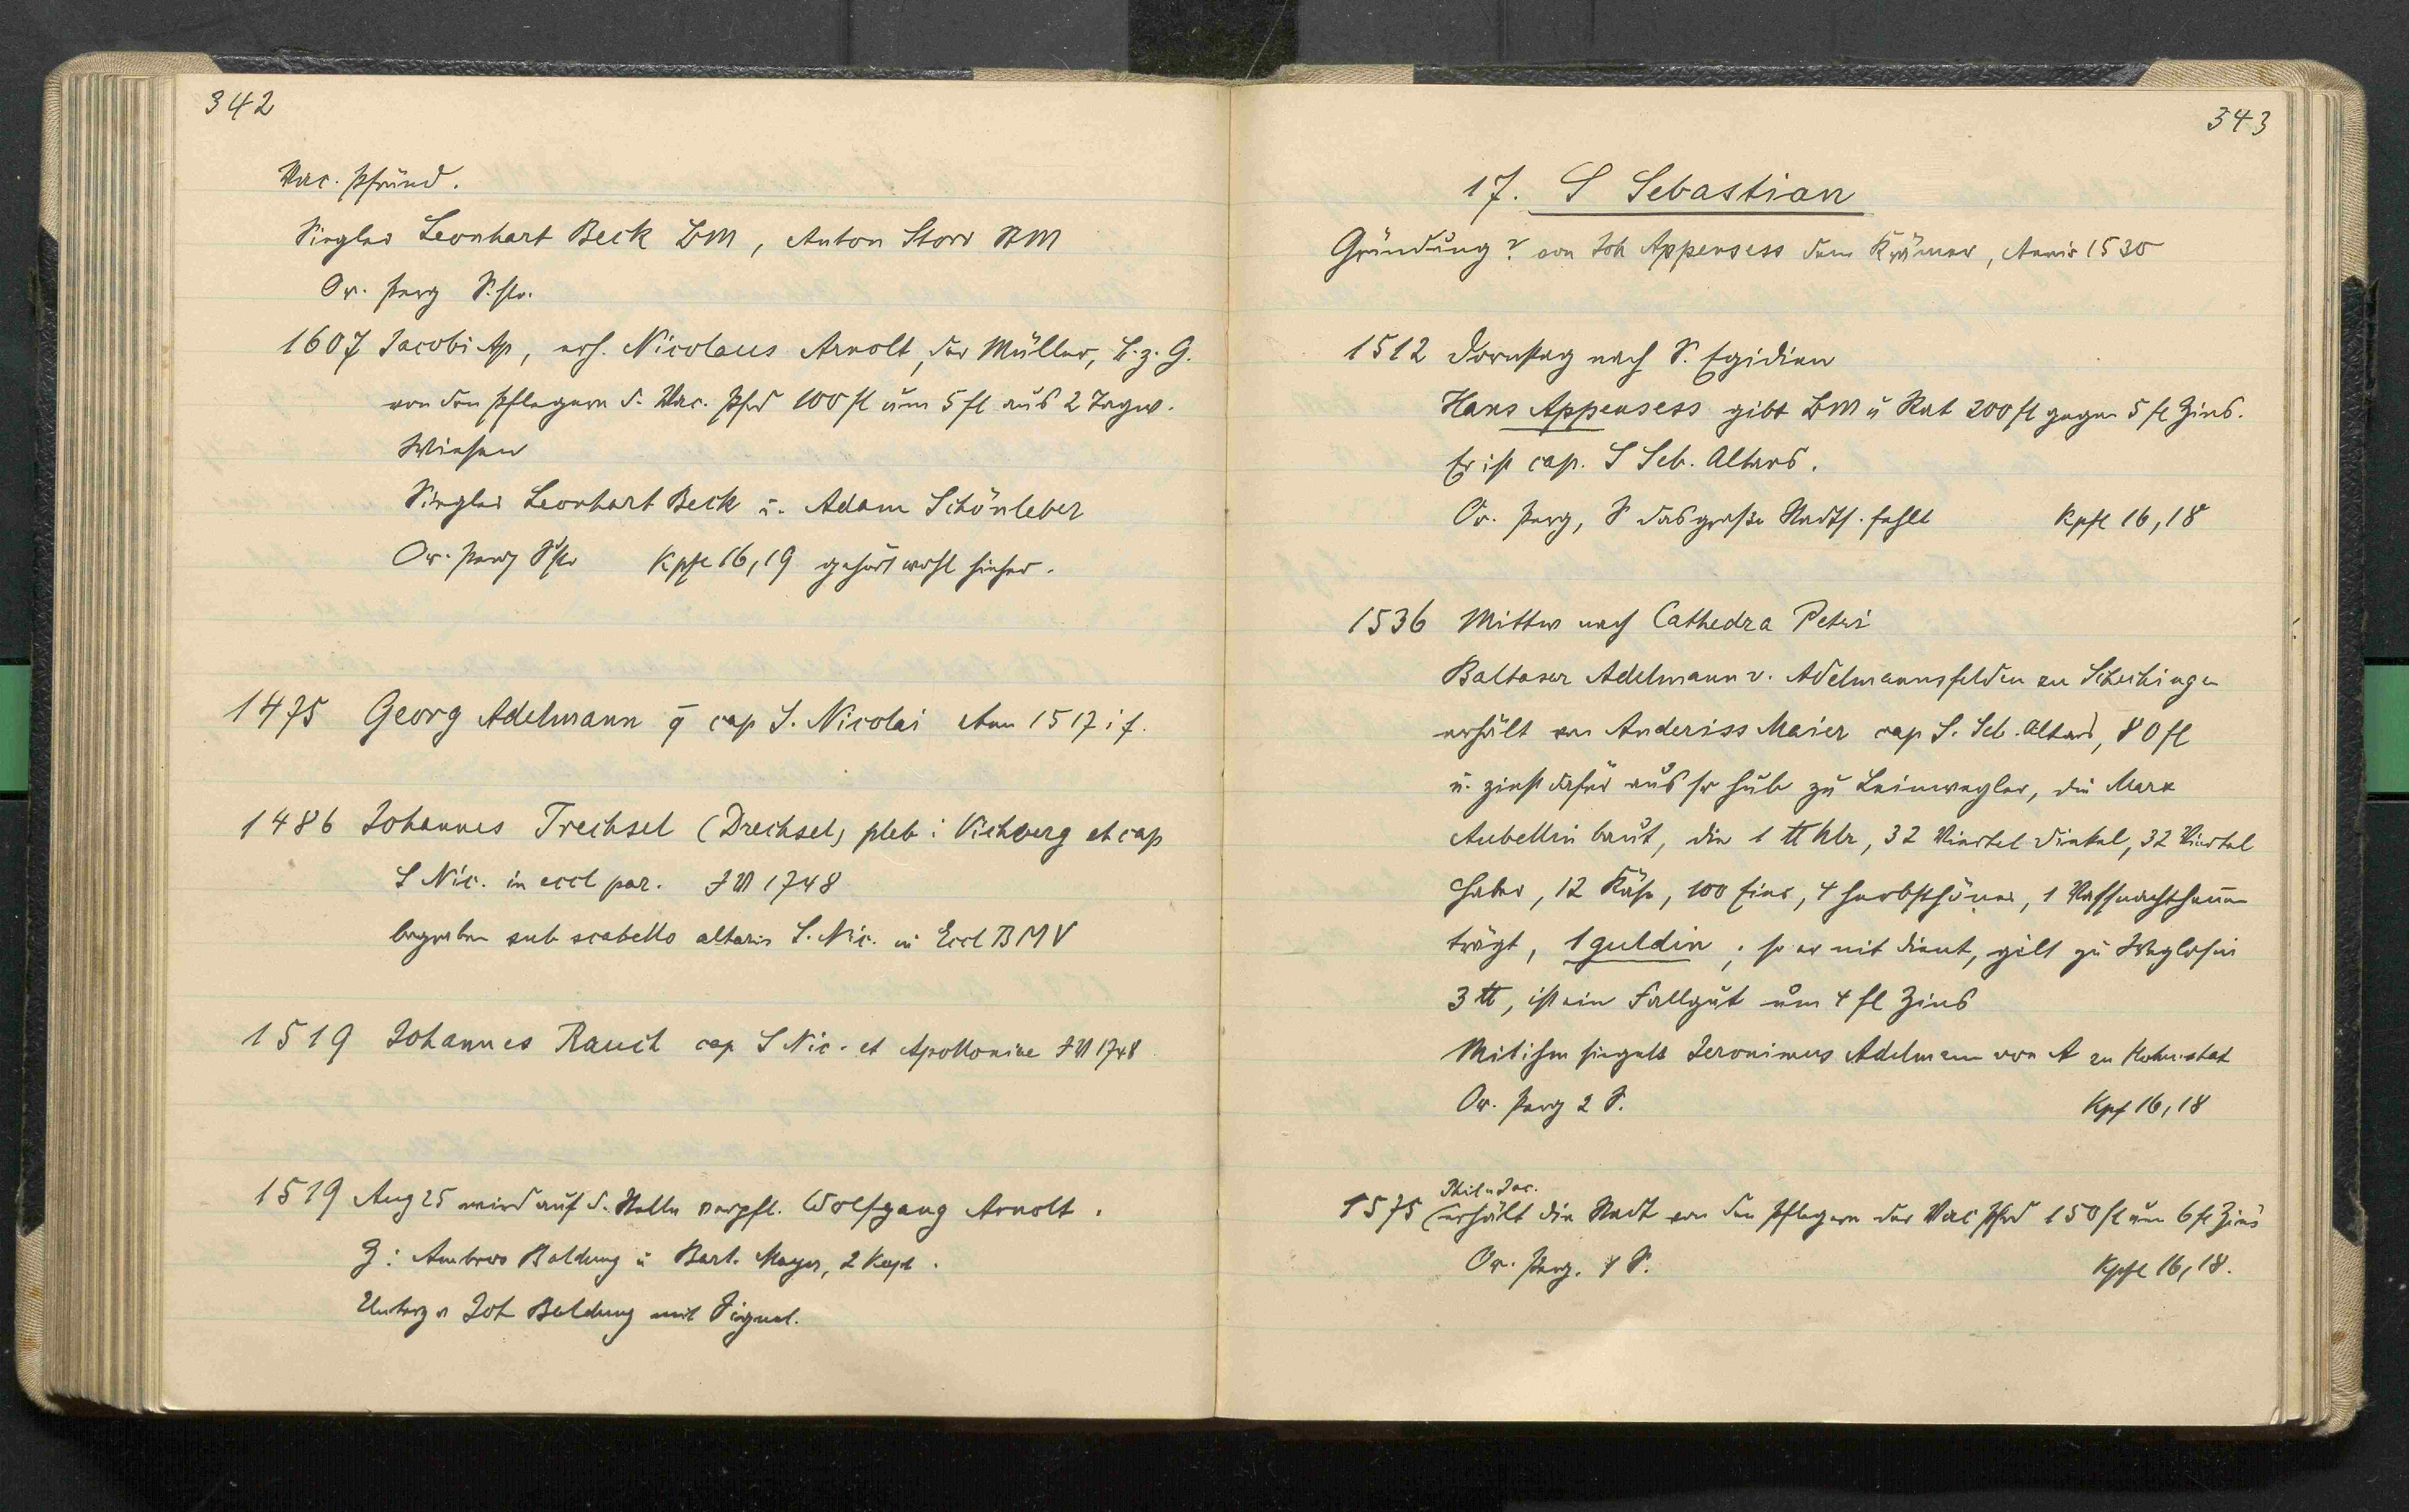 342
Vac. Pfründ.
Siegler Leonhart Beck BM, Anton Storr StM
Or. Perg S. fhr.
1607 Jacobi Ap, erh. Nicolaus Arnolt, der Müller, B. z. G.
von den Pflegern d. Vac. Pfrd 100 fl um 5 fl aus 2 Tagw.
Wiesen
Siegler Leonhart Beck u. Adam Schönleber
Or. Perg Kpfl 16,19 gehört wohl hieher.
1475 Georg Adelmann cap S. Nicolai Ann 1517 i f.
1486 Johannes Trechsel (Drechsel) pleb i Vichberg et cap
S Nic. in eccl par. 1748
begraben sub scabello altaris S. Nic. in Eccl BMV
1519 Johannes Rauch cap S Nic. et Apolloniae 1748
1519 Aug 25 wird auf d. Stelle verpfl. Wolfgang Arnolt.
Z: Ambros Baldung u Bart. Mayer, 2 Kapl.
Unterz v Joh Baldung mit Signet.
343
17. S Sebastian
Gründung? von Joh Appensess dem Krämer, Annis 1530
1512 Dornstag nach S. Egidien
Hans Appensess gibt BM u Rat 200 fl gegen 5 fl Zins.
Er ist cap. S Seb. Altars.
Or. Perg, S das große Stadts. fehlt Kpfl 16,18
1536 Mittw nach Cathedra Petri
Baltasar Adelmann v. Adelmannsfelden zu Schechingen
erhält von Anderiss Maier cap S. Seb. Altars, 80 fl
u. zinst dafür aus sr Hub zu Leinweyler, die Marx
Aubellin baut, die 1 ℔ hlr, 32 Viertel Dinkel, 32 Viertel
Haber, 12 Käse, 100 Eier, 4 Herbsthöner, 1 Vassnachthenn
trägt, 1 guldin; so er nit dient, gilt zu Weglösin
3 ℔, ist ein Fallgut um 4 fl Zins
Mit ihm siegelt Jeronimus Adelmann von A zu Hohenstat
Or. Perg 2 S. Kpf 16,18
Phil u Jac.
1575 erhält die Stadt von den Pflegern der Vac Pfrd 150 fl um 6 fl Zins
Or. Perg. 1 S. Kpfl 16,18.